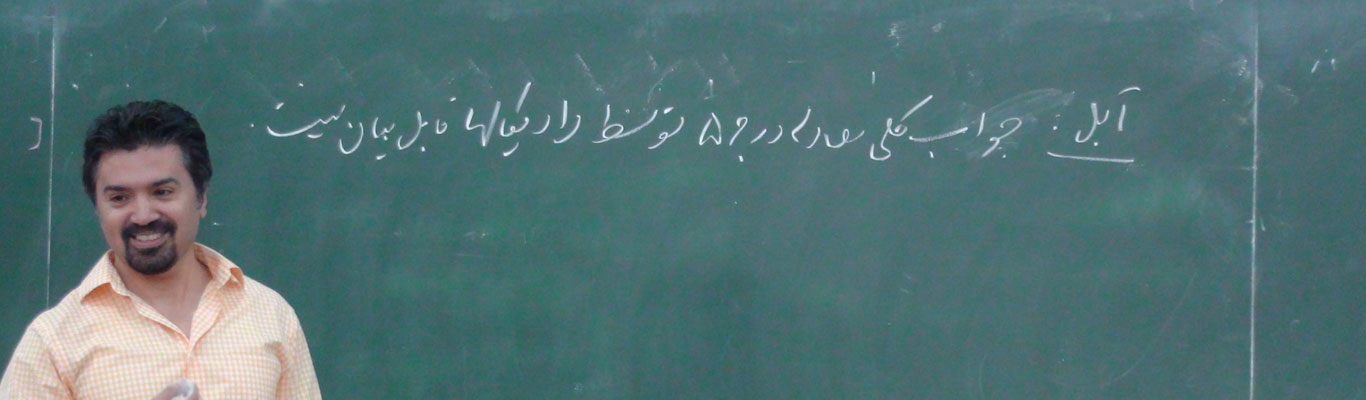 آبل: جواب کلی معادله درجه ۵ توسط رادیکالها قابل بیان نیست.